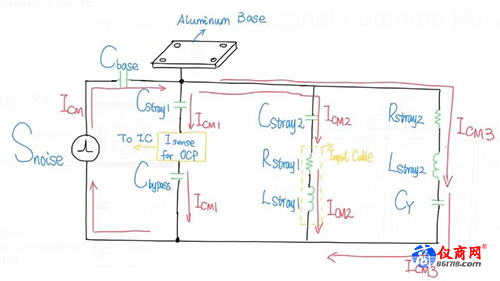 Aluminum Base
Cbase
ICM
Cstray1
ICM1
Cstray2
ICM2
Rstray2
ICM3
Snoise
To IC
Isense
for OCP
Input Cable
Rstray1
Lstray2
Cbypass
ICM1
Lstray1
ICM2
CY
ICM3
仪商网
861718.com